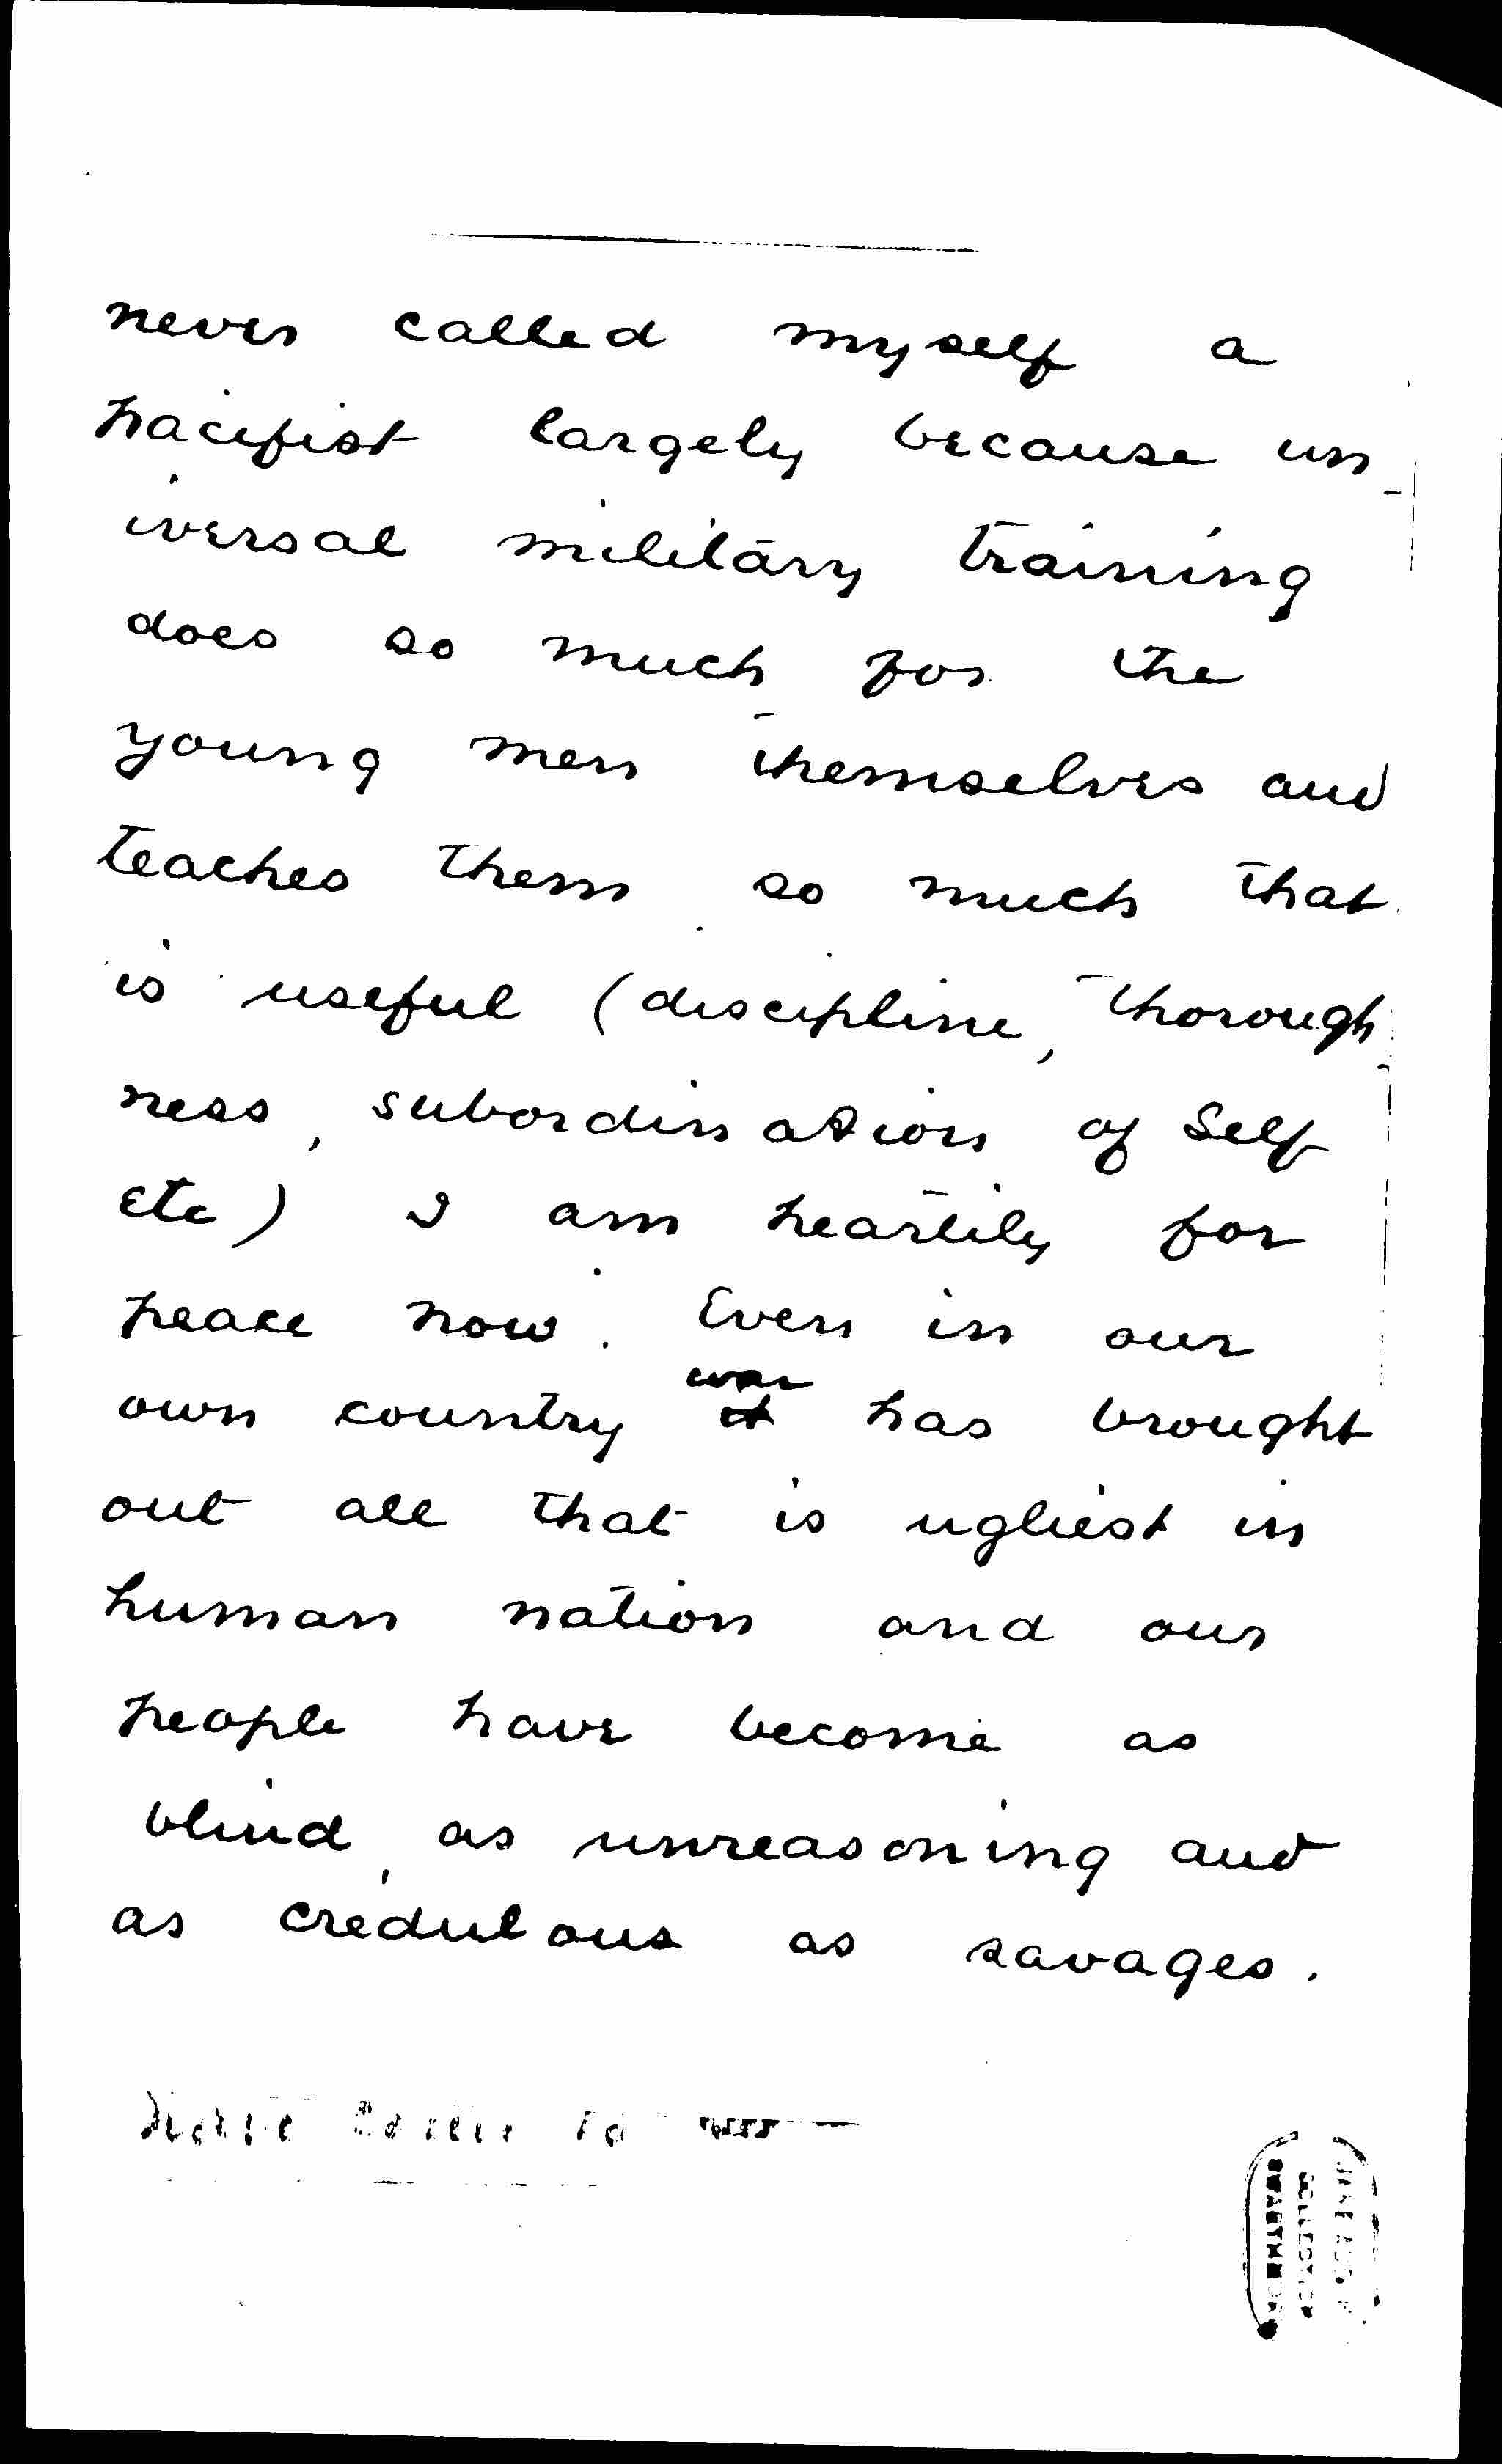 never called myself a
pacifist largely because un-
iversal military training
does so much for the
young men themselves and
teaches them so much that
is useful (discipline, thorough-
ness, subordination of self
etc) I am heartily for
peace now. Even in our
own country war has brought
out all that is ugliest in
human nation and our
people have become as
blind, as unreasoning and
as credulous as savages.
SWARTHMORE
COLLECTION